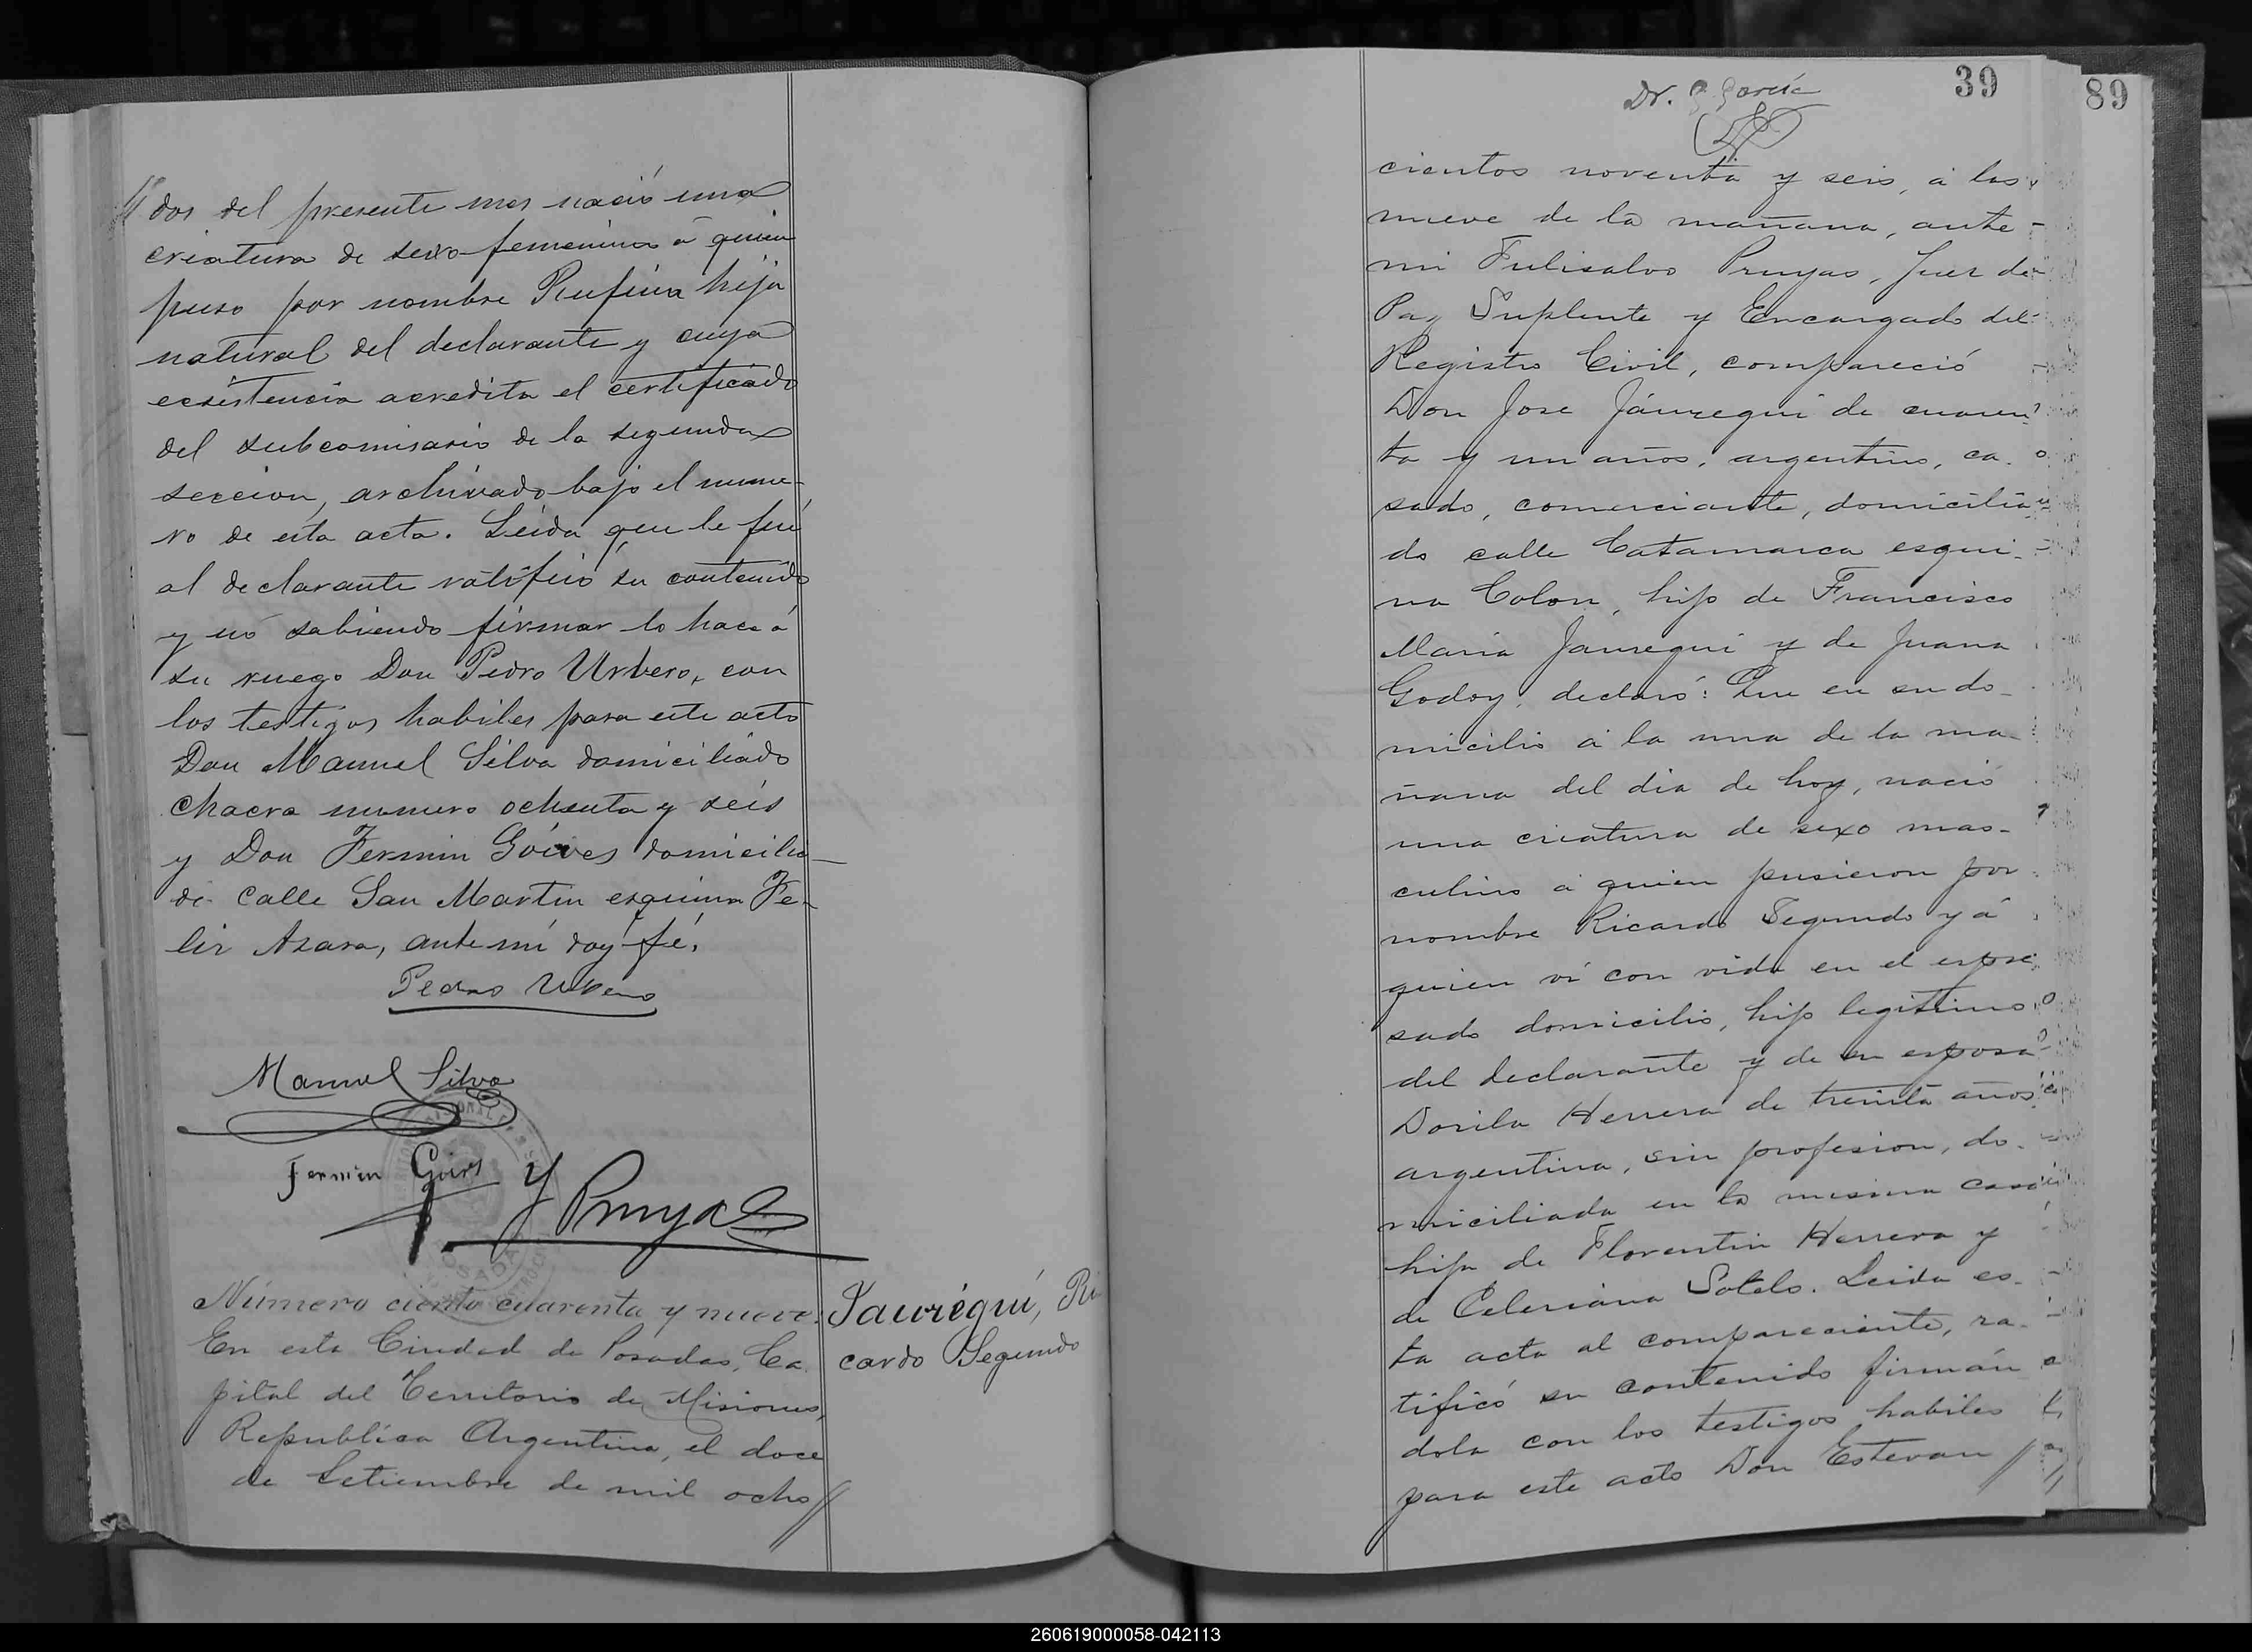 dos del presente mes nació una
criatura de sexo femenino á quien
puso por nombre Rufina hija
natural del declarante y cuya
ecsistencia acredita el certificado
del subcomisario de la segunda
seccion, archivado bajo el nume-
ro de esta acta. Leida que le fué
al declarante ratificó su contenido
y nó sabiendo firmar lo hace á
su ruego Don Pedro Urbero, con
los testigos habiles para este acto
Don Manuel Silva domiciliado
chacra numero ochenta y seis
y Don Fermin Goives domicilia-
do calle San Martin esquina Fe-
liz Azara, ante mí doy fé,
Pedro
Manuel Silva
Fermin
Pruyas
Número ciento cuarenta y nueve:
En esta Ciudad de Posadas, Ca
pital del Territorio de Misiones,
Republica Argentina, el doce
de Setiembre de mil ocho//
Jaurégui, Ri
cardo Segundo
39
89
Dr. García
cientos noventa y seis, á las
nueve de la mañana, ante
mi Fulisalvo Pruyas, Juez de
Paz Suplente y Encargado del
Registro Civil, compareció
Don Jose Jáuregui de cuaren
ta y un años, argentino, ca.
sado, comerciante, domicilia
do calle Catamarca esqui-
na Colon, hijo de Francisco
Maria Jauregui y de Juana
Godoy, declaró: Que en su do-
micilio á la una de la ma-
ñana del dia de hoy, nació
una criatura de sexo mas-
culino á quien pusieron por
nombre Ricardo Segundo y á
quien ví con vida en el espre
sado domicilio, hijo legitimo
del declarante y de su esposa
Dorila Herrera de treinta años
argentina, sin profesion, do-
miciliada en la misma casa
hija de Florentin Herrera y
de Celeriana Sotelo. Leida es-
ta acta al compareciente, ra-
tificó su contenido firmán
dola con los testigos habiles
para este acto Don Estevan //
260619000058-042113